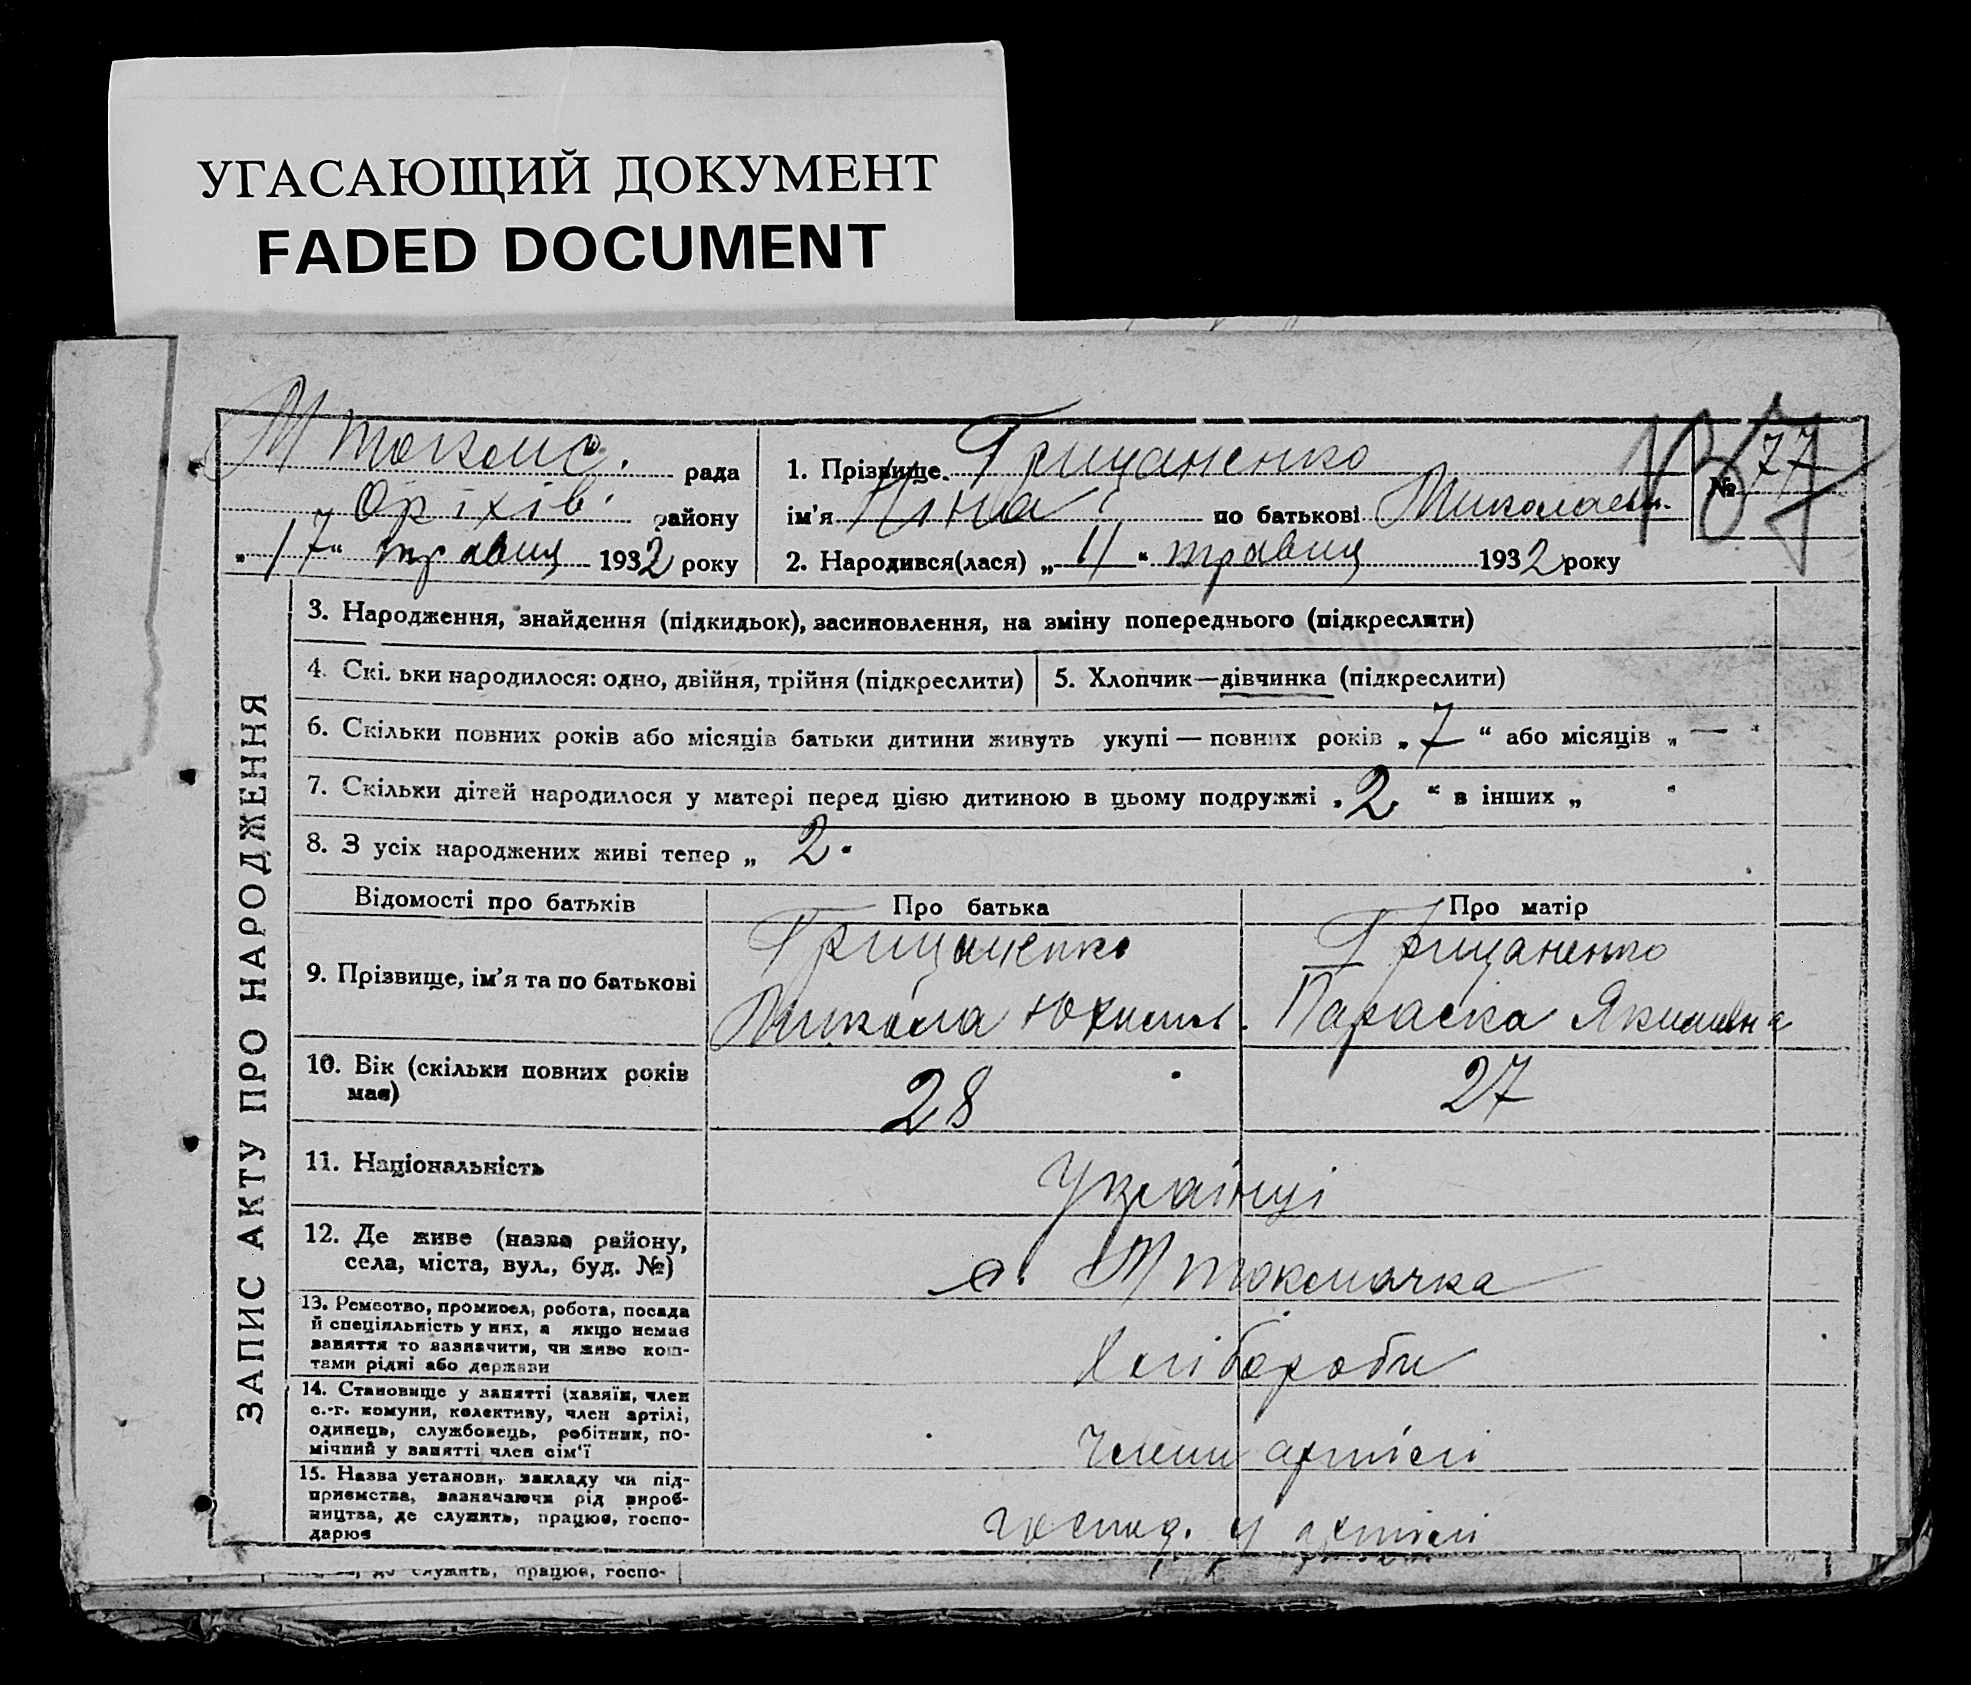 УГАСАЮЩИЙ ДОКУМЕНТ
FADED DOCUMENT
М Токмс. рада
Оріхів. району
„17“ травня 1932 року
1. Прізвище Грицаненко
ім’я Ніна по батькові Миколаєв.
№ 77
137
2. Народився(лася) „11“ травня 1932 року
ЗАПИС АКТУ ПРО НАРОДЖЕННЯ
3. Народження, знайдення (підкидьок), засиновлення, на зміну попереднього (підкреслити)
4. Скі. ьки народилося: одно, двійня, трійня (підкреслити)
5. Хлопчик—дівчинка (підкреслити)
6. Скільки повних років або місяців батьки дитини живуть укупі — повних років „7“ або місяців „—“
7. Скільки дітей народилося у матері перед цією дитиною в цьому подружжі „2“ в інших „ “
8. З усіх народжених живі тепер „ 2.
Відомості про батьків
Про батька
Про матір
9. Прізвище, ім’я та по батькові
Грицаненко
Микола Юхимов.
Грицаненко
Параска Якимівна
10. Вік (скільки повних років
має)
28
27
11. Національність
Українці
12. Де живе (назва району,
села, міста, вул., буд. №)
с. М Токмачка
13. Ремество, промисел, робота, посада
й спеціяльність у них, а якщо немає
заняття то зазначити, чи живе кош-
тами рідні або держави
Хлібороби
14. Становище у занятті (хазяїн, член
с.-г. комуни, колективу, член артілі,
одинець, службовець, робітник, по-
мічний у занятті член сім’ї
Члени артілі
15. Назва установи, закладу чи під-
приємства, зазначаючи рід вироб-
ництва, де служить, працює, госпо-
дарює
господ. у артілі
де служить, працює, госпо-